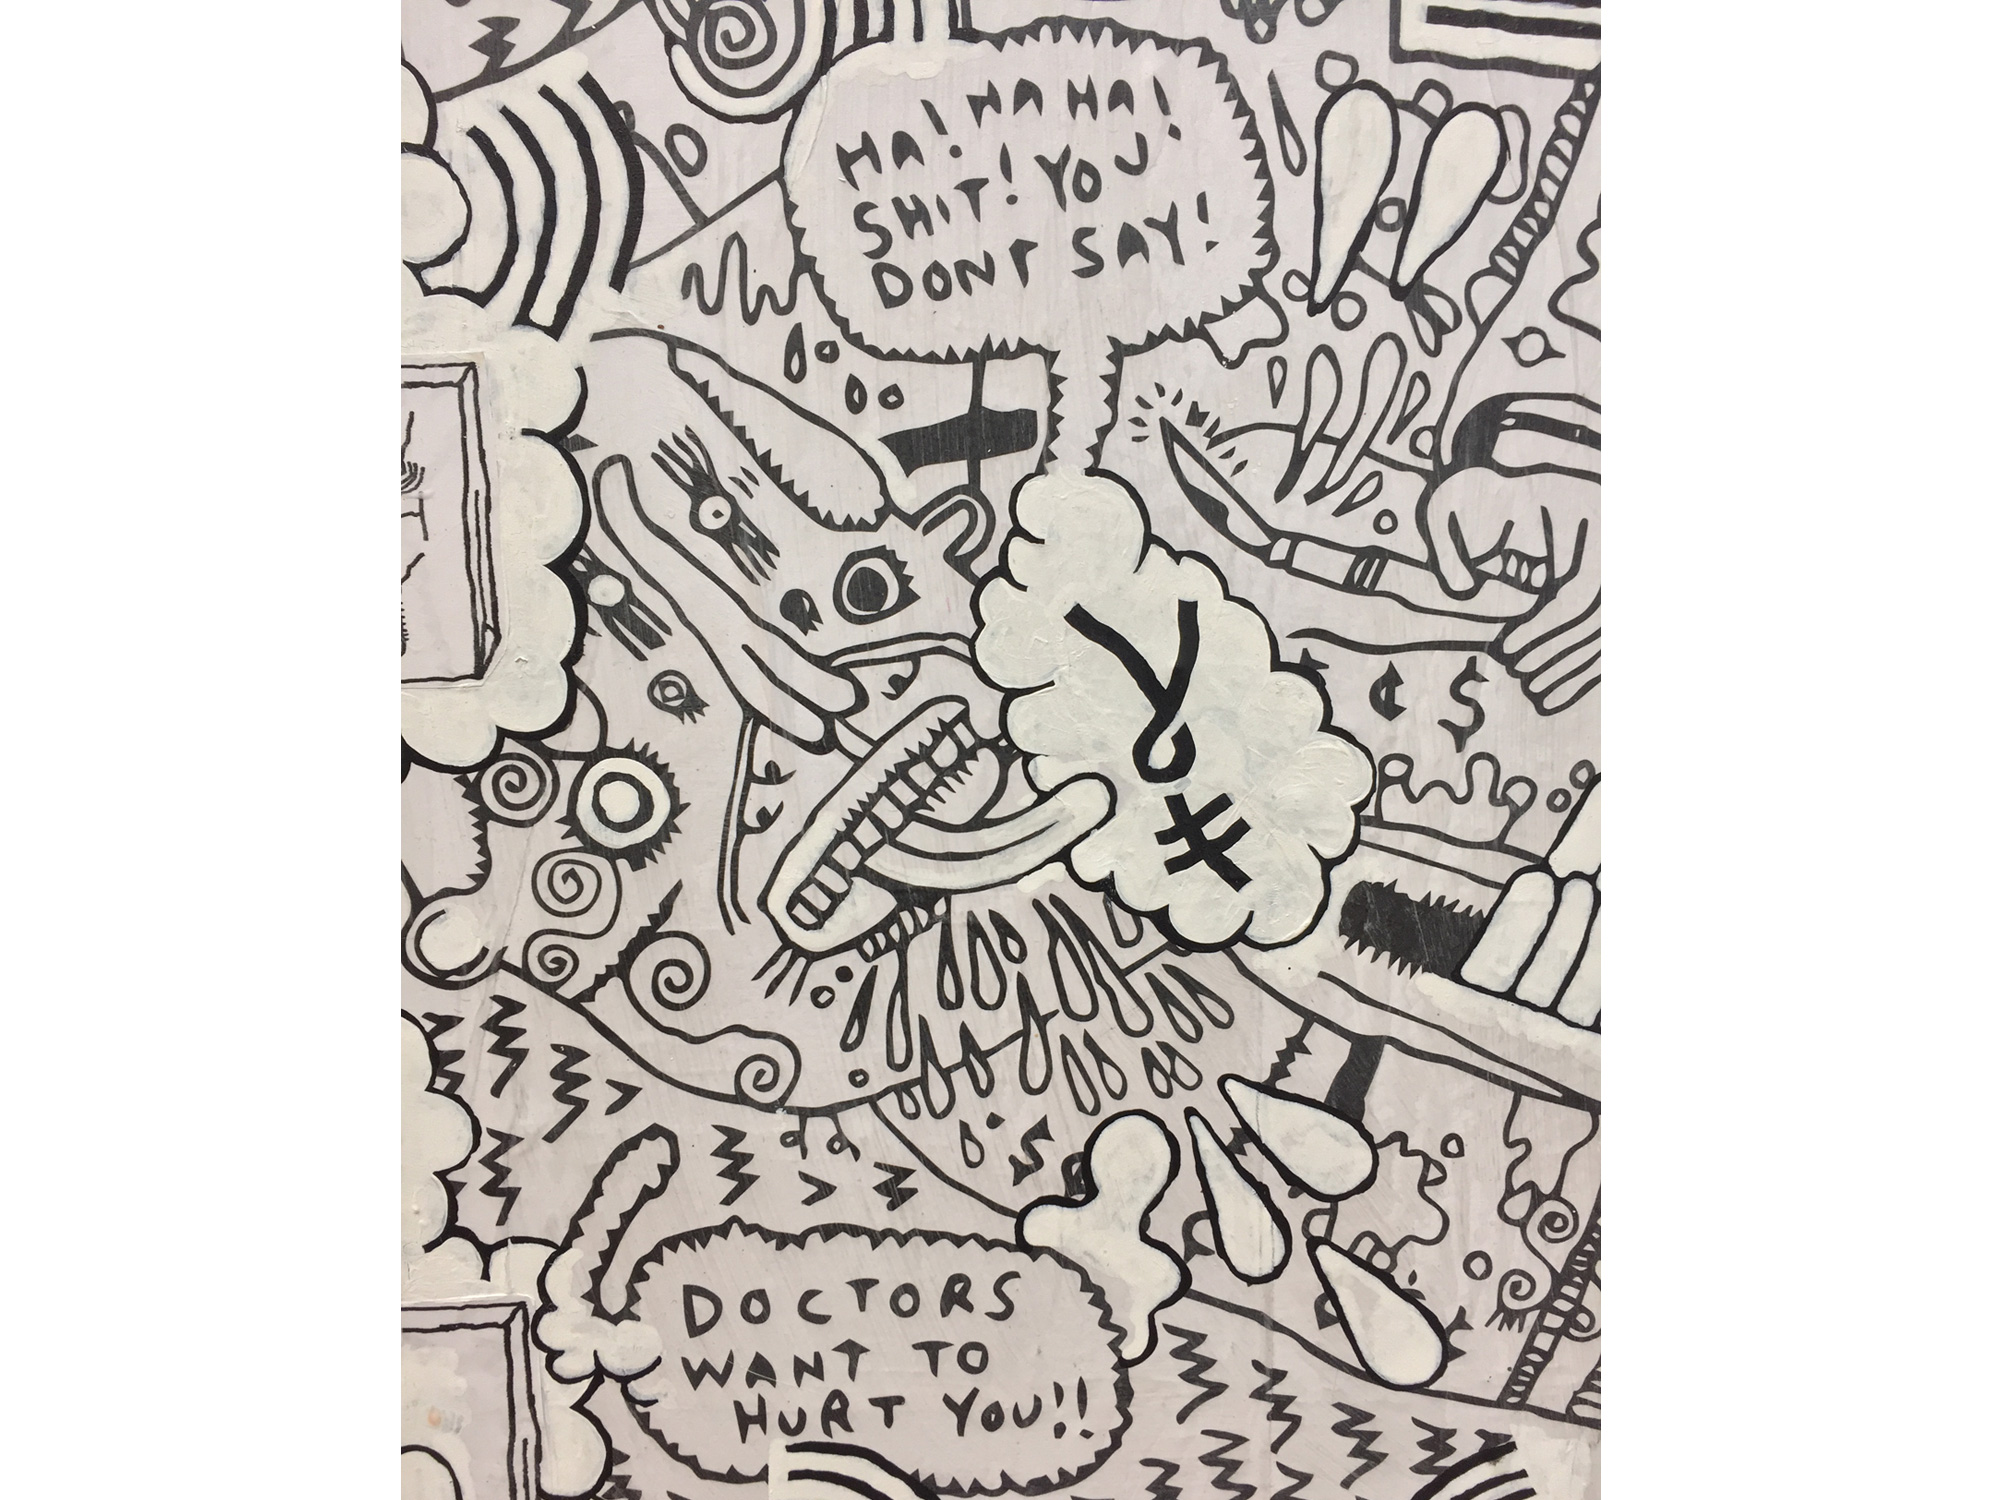 HA! HA HA!
SHIT! YOU
DONT SAY!
¢ $
DOCTORS
WANT TO
HURT YOU!!